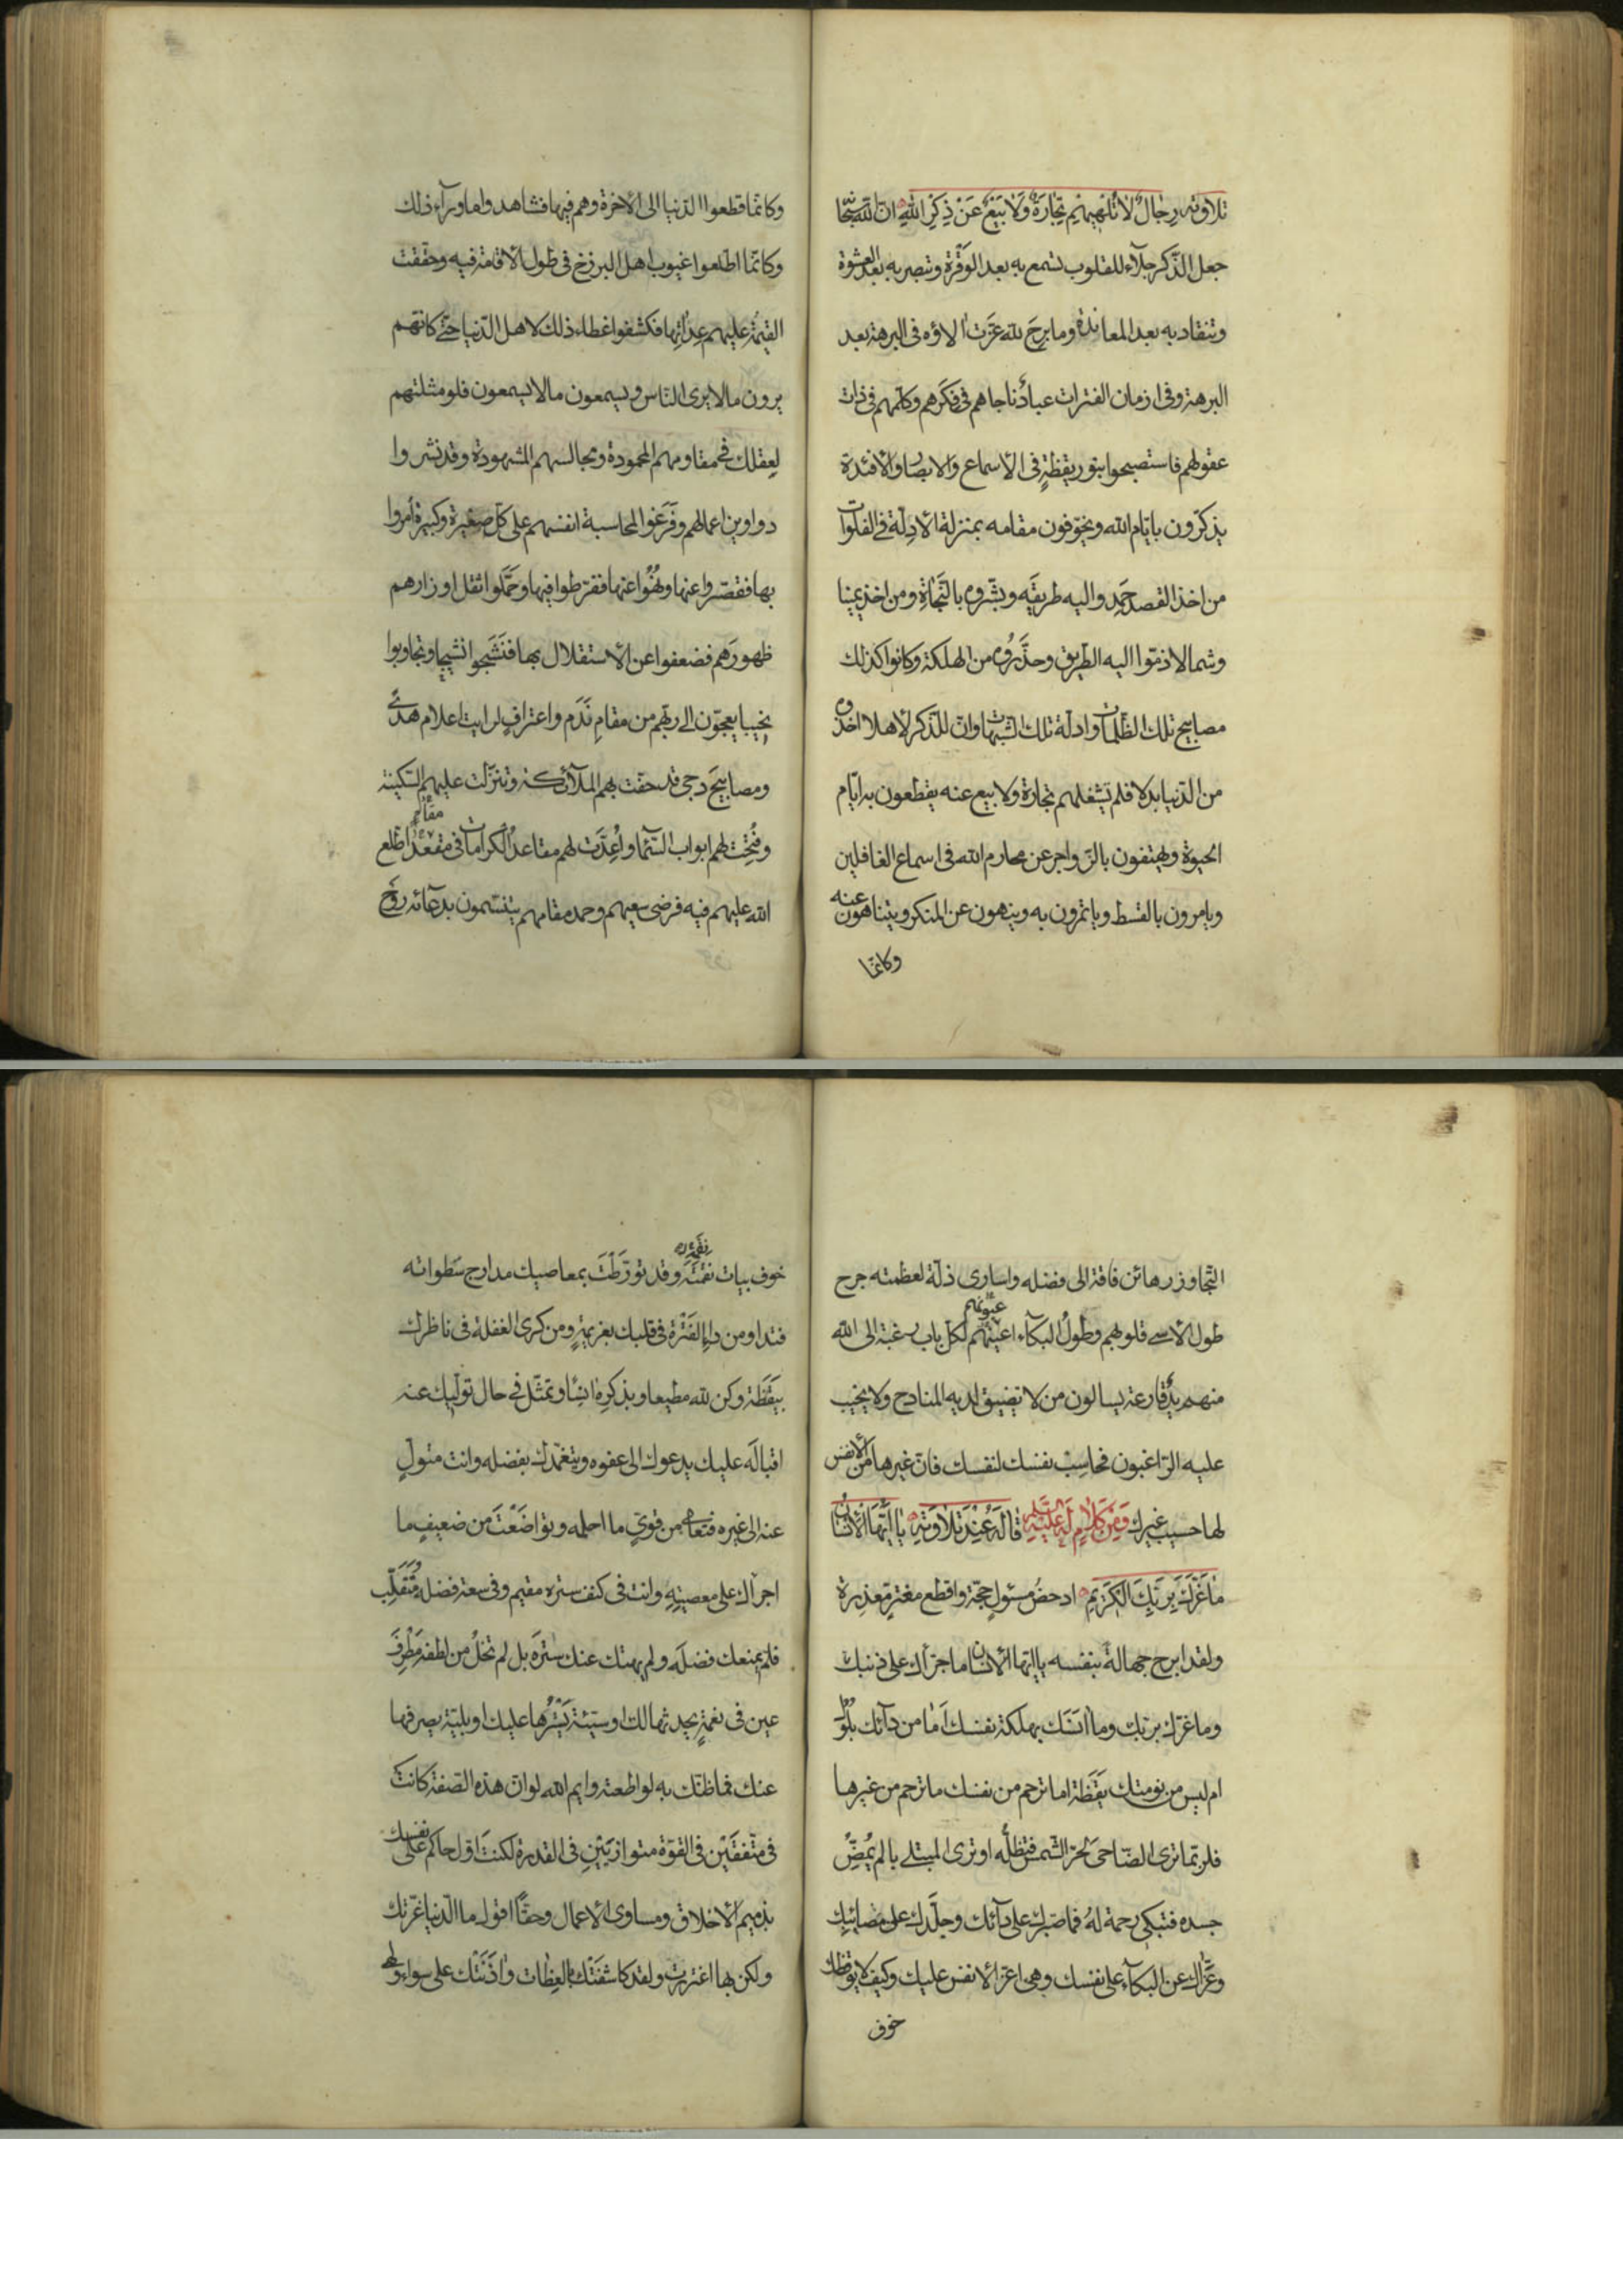 تلاوته رِجَالٌ لَا تُلْهِيهِمْ تِجَارَةٌ وَلَا بَيْعٌ عَنْ ذِكْرِ اللهِ ان الله سبحانه
جعل الذّكر جلآء للقلوب تسمع به بعد الوَقْرَة وتبصر به بعد العشوة
وتنقاد به بعد المعاندة وما برِحَ لله عَزَّت الاؤه فى البرهة بعد
البرهة وفى ازمان الفترات عبادٌ ناجاهم فى فكَرهم وكلّمهم فى ذات
عقولهم فاستصبحوا بنور يقظةٍ فى الاسماع والابصار والافئدة
يذكّرون بايّام الله ويخوّفون مقامه بمنزلة الادِلّة فى الفلوات
من اخذ القصد حَمِدوا اليه طريقَه وبشّروه بالنّجاة ومن اخذ يمينا
وشمالا ذمّوا اليه الطريق وحذَّروه من الهلكة وكانوا كذلك
مصابيح تلك الظّلمات وادلّة تلك الشّبهات وانّ للذّكر لاهلا اخذوه
من الدّنيا بدلا فلم تشغلهم تجارة ولا بيع عنه يقطعون به ايّام
الحيوة ويهتفون بالزّواجر عن محارم الله فى اسماع الغافلين
ويامرون بالقسط وياتمرون به وينهون عن المنكر ويتناهون عنه
وكانّما
وكانّما قطعوا الدّنيا الى الاخرة وهم فيها فشاهدوا ما ورآء ذلك
وكانّما اطّلعوا غيوب اهل البرزخ فى طول الاقامة فيه وحقّقت
القيمة عليهم عِداتِها فكشفوا غطاء ذلك لاهل الدّنيا حتّى كانّهم
يرون مالا يرى النّاس ويسمعون مالا يسمعون فلو مثلتهم
لِعقلك فى مقاومهم المحمودة ومجالسهم المشهودة وقد نشروا
دواوين اعمالهم وفَرَغوا لمحاسبة انفسهم على كل صغيرة وكبيرة اُمروا
بها فقصّروا عنها ونُهُوا عنها ففرّطوا فيها وحَمَّلوا ثقل اوزارهم
ظهورَهم فضعفوا عن الاستقلال بها فنَشَجوا نشيجا وتجاوبوا
نحيبا يعجّون الى ربّهم من مقامِ نَدَم واعترافٍ لرايت اعلام هدىً
ومصابيحَ دجى قد حفّت بهم الملآئكة وتنزّلت عليهم السّكينة
وفُتِحَت لهم ابواب السّمآء واُعِدَّت لهم مقاعدُ الكرامات فى مقعدٍ اطّلع
مقامٍ
الله عليهم فيه فرضى سعيهم وحمد مقامهم يتنسّمون بدعآئه رَوْحَ
التّجاوز رهائن فاقة الى فضله واسارى ذلّة لعظمته جرح
طول الاسى قلوبهم وطولُ البكآء اعينهم لكل باب رغبة الى الله
عيونهم
منهم يدٌ قارعة يسالون من لا تضيق لديه المنادح ولا يخيب
عليه الرّاغبون فحاسِبْ نفسك لنفسك فانّ غيرها من الانفس
لها حسيب غيرك وَمِنْ كَلَامٍ لَهُ عَلَيْهِ السَّلم قَالَهُ عِنْدَ تِلَاوَتِهِ يَا اَيُّهَا الْاِنْسَانُ
مَا غَرَّكَ بِرَبِّكَ الْكَرِيمِ ادحضُ مسئولٍ حجّة واقطع مغترٍّ معذرة
ولقد ابرح جهالةً بنفسه يا ايّها الانسان ما جرّاك على ذنبك
وما غرّك بربّك وما انَّسَك بهلكة نفسك اَمَا من دآئك بُلُوّ
ام ليس من نومتك يَقَظَة اما ترحم من نفسك ما ترحم من غيرها
فلربّما ترى الضّاحى لحرّ الشّمس فتظلّه او ترى المبتلى بالم يُمِضّ
جسده فتبكى رحمة لهُ فما صبّرك على دآئك وجلَّدك على مصائبك
وعَزَّاك عن البكآء على نفسك وهى اعزّ الانفس عليك وكيف لا يوقظك
خوف
نِقَمِهِ
خوف بيات نقمَتَه وقد تورَّطْتَ بمعاصيك مدارج سَطواته
فتداو من دآء الفَتْرَة فى قلبك بعزيمةٍ ومن كرى الغفلة فى ناظرك
بيَقَظَة وكن لله مطيعا وبذكرِه انِسًا وتمثّل فى حال تولّيك عنه
اقبالَه عليك يدعوك الى عفوه ويتغمّدك بفضله وانت متولٍّ
عنه الى غيره فتعالى من قوىٍّ ما احلمه وتواضَعْتَ من ضعيفٍ ما
اجراك على معصيتِهِ وانت فى كنف ستره مقيم وفى سعة فضله مُتَقَلِّب
فلم يمنعك فضلَه ولم يهتك عنك سِترَه بل لم تخلُ من لطفه مَطْرِفَ
عين فى نعمةٍ يحدثها لك او سيّئة يَسْتُرُها عليك او بليّة يصرفها
عنك فما ظنّك به لو اطعته وايم الله لو انّ هذه الصّفة كانت
فى متّفقَيْن فى القوّة متوازيَيْنِ فى القدرة لكنتَ اوّل حاكم على نفسك
بذميم الاخلاق ومساوى الاعمال وحقّاً اقول ما الدّنيا غرّتك
ولكن بها اغتررت ولقد كاشفَتْك بالعِظات واٰذَنَتْك على سواء ولَهِىَ